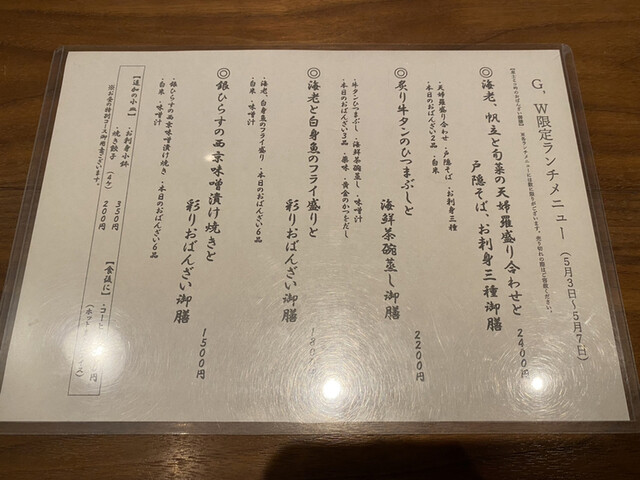 G,W限定ランチメニュー(5月3日~5月7日)
◎海老、帆立と旬菜の天婦羅盛り合わせと
戸隠そば、お刺身三種御膳
2400円
・天婦羅盛り合わせ ・戸隠そば ・お刺身三種
・本日のおばんざい2品 ・白米
◎炙り牛タンのひつまぶしと
海鮮茶碗蒸し御膳
2200円
・牛タンひつまぶし ・海鮮茶碗蒸し ・味噌汁
・本日のおばんざい3品 ・薬味 ・黄金のかつをだし
◎海老と白身魚のフライ盛りと
彩りおばんざい御膳
・海老、白身魚のフライ盛り ・本日のおばんざい6品
・白米 ・味噌汁
◎銀ひらすの西京味噌漬け焼きと
彩りおばんざい御膳
1500円
・銀ひらすの西京味噌漬け焼き ・本日のおばんざい6品
・白米 ・味噌汁
【追加の小皿】
・お刺身小鉢 350円
・焼き餃子(4ケ) 200円
※お昼の特別コース御用意ございます。
【食後に】